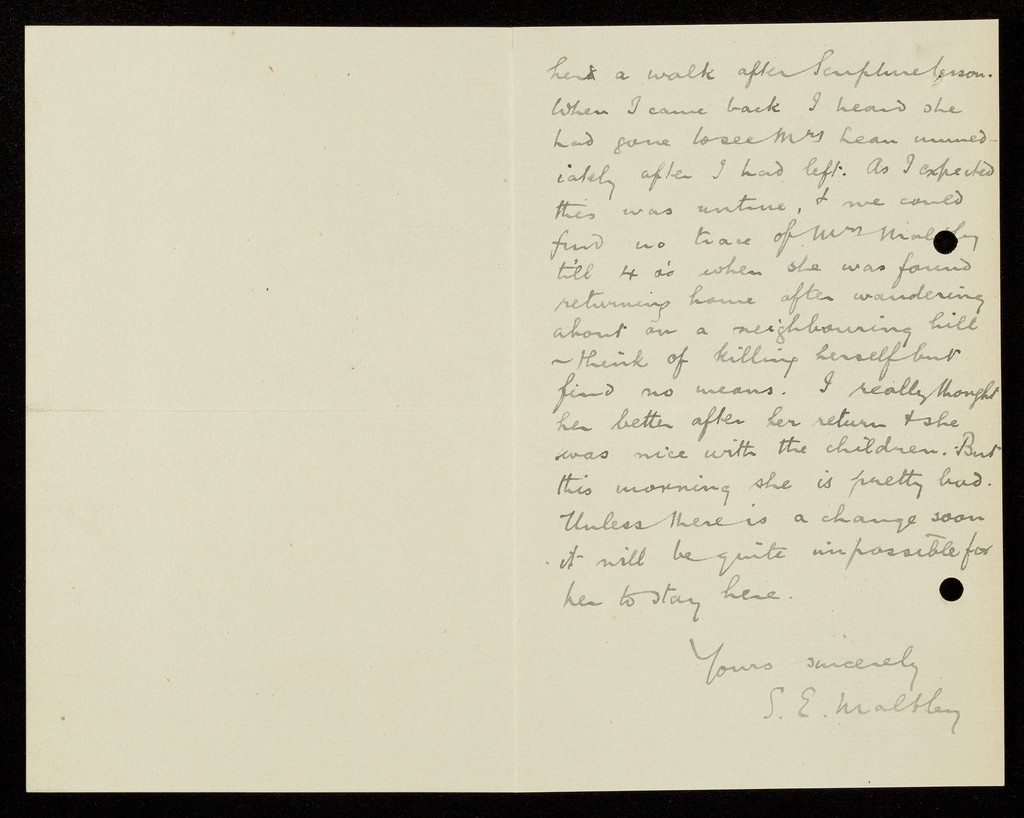 her a walk after Scripture lesson.
When I came back I heard she
had gone to see Mrs Hean immed-
iately after I had left. As I expected
this was untrue, & we could
find no trace of Mrs Maltby
till 4 o'c when she was found
returning home after wandering
about on a neighbouring hill
think of killing herself but
find no means. I really thought
her better after her return & she
was nice with the children. But
this morning she is pretty bad.
Unless there is a change soon
it will be quite impossible for
her to stay here.
Yours sincerely
S. E. Maltby